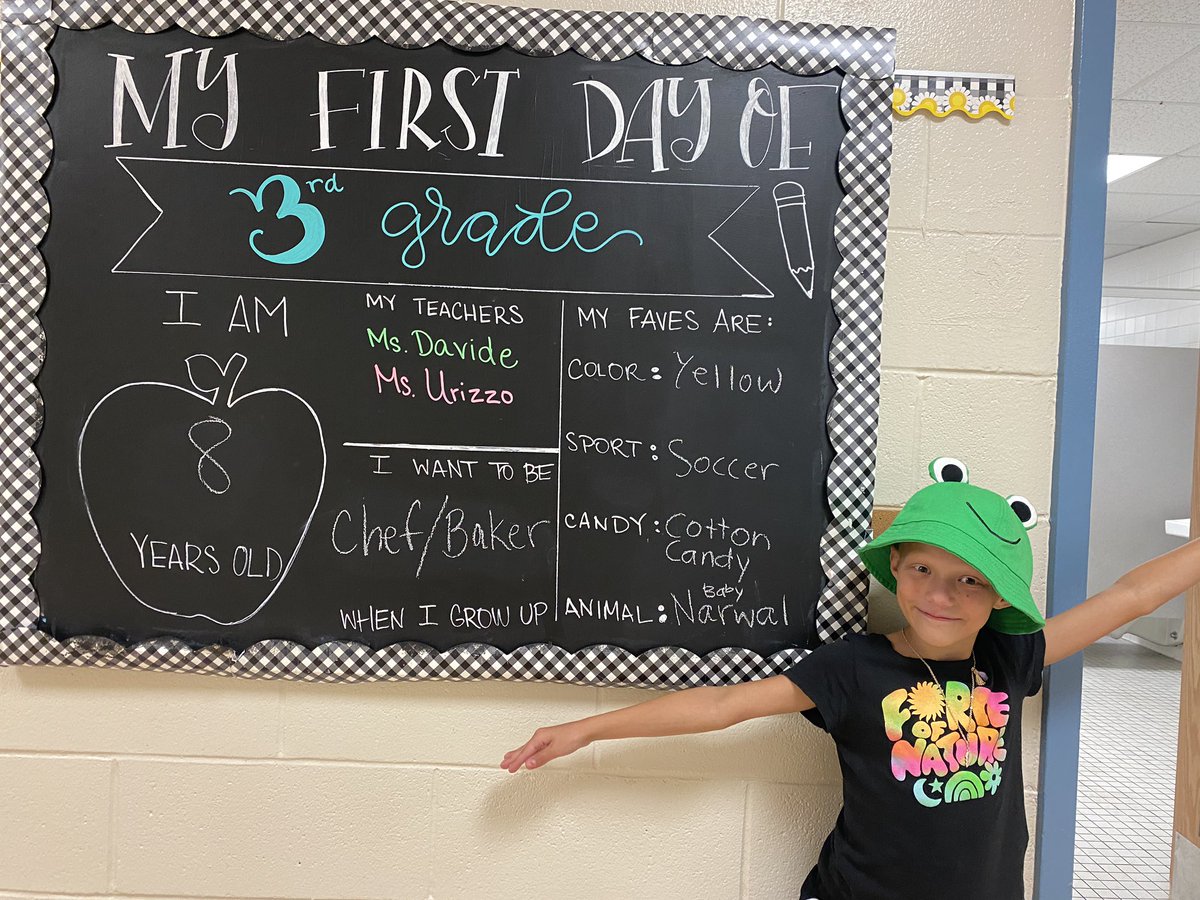 MY FIRST DAY OF
3rd grade
I AM
8
YEARS OLD
MY TEACHERS
Ms. Davide
Ms. Urizzo
I WANT TO BE
Chef/Baker
WHEN I GROW UP
MY FAVES ARE:
COLOR: Yellow
SPORT: Soccer
CANDY: Cotton
Candy
Baby
ANIMAL: Narwal
FORCE
OF
NATURE